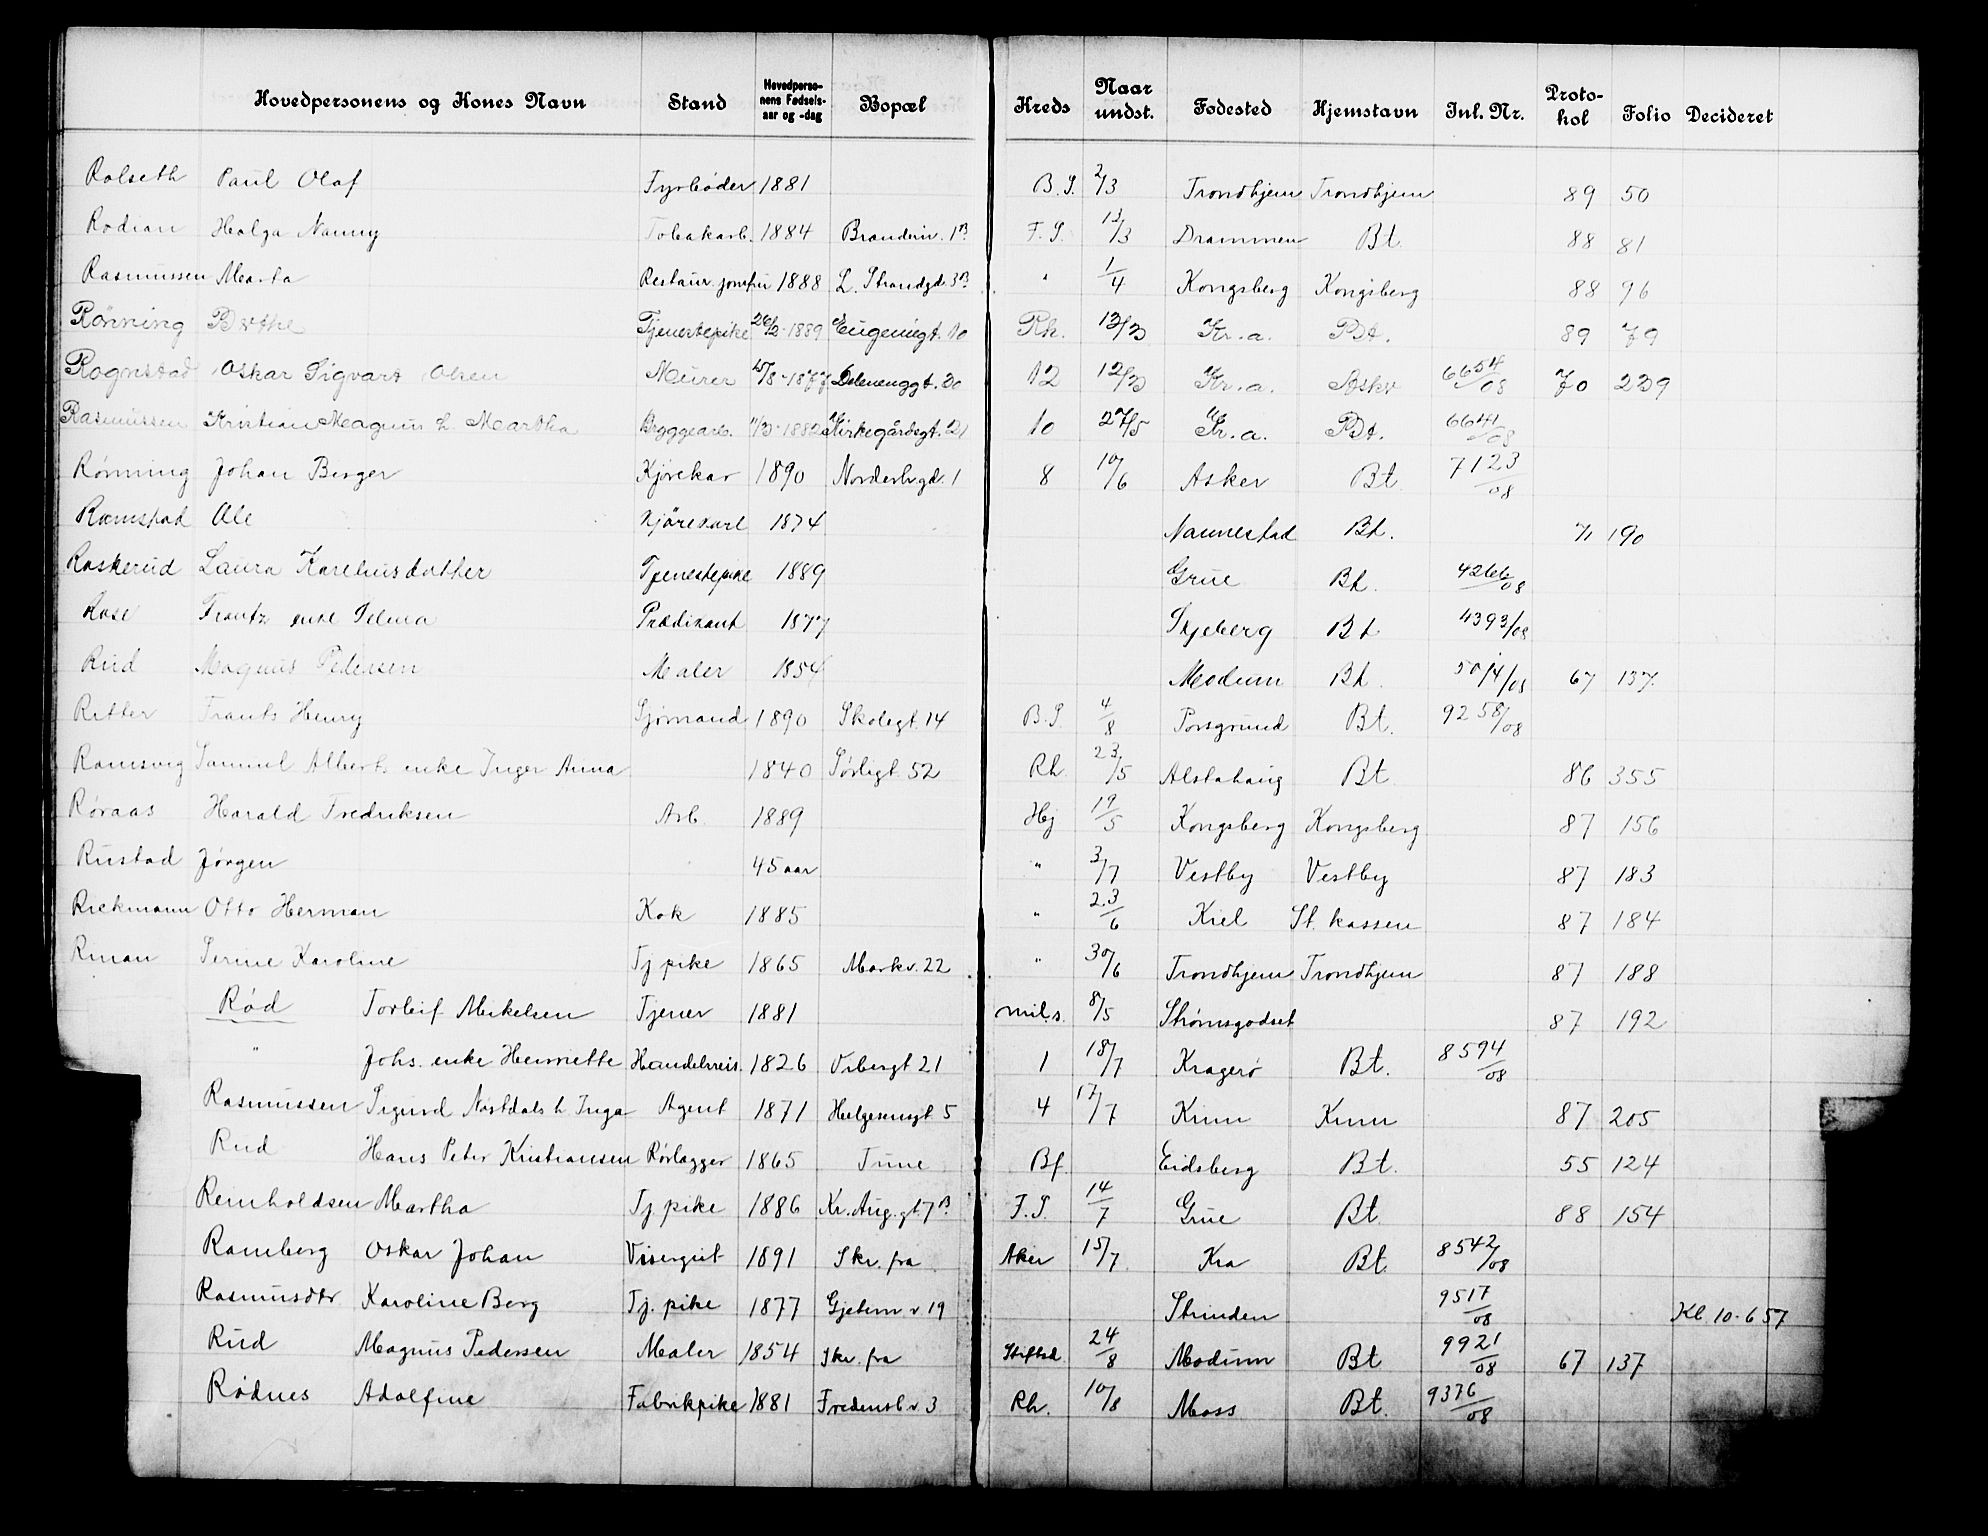 Hovedpersonens og Kones Navn | Stand | Hovedpersonens Fødselsaar og -dag | Bopæl | Kreds | Naar undst. | Fødested | Hjemstavn | Jnl. Nr. | Protokol | Folio | Decideret
Rolseth Paul Olaf Fyrbøder 1881 B.S. 2/3 Trondhjem Trondhjem 89 50
Rodian Helga Nanny Tobakarb. 1884 Brandenv. 1B F.S. 13/3 Drammen Bt. 88 81
Rasmussen Marta 1888 L. Strandgd. 3B " 1/4 Kongsberg Kongsberg 88 96
Rønning Berthe Tjenestepike 26/2-1889 Eugeniagt. 10 Rh. 13/3 Kr.a. Bt. 89 79
Rognstad Oskar Sigvart Olsen Murer 15/8-1877 Delenenggt. 20 12 12/3 Kr.a. Asker 6654/08 70 239
Rasmussen Kristian Magnus h. Martha Byggearb. 11/3-1882 Kirkegårdsgt. 21 10 27/5 Kr.a. Bt. 6641/08
Rønning Johan Berger Kjørekar 1890 Norderhvgd. 1 8 10/6 Asker Bt 7123/08
Ramstad Ole Kjørekarl 1874 Nannestad Bt. 71 190
Raskerud Laura Kareliusdatter Tjenestepike 1889 Grue Bt. 4266/08
Rose Frantz enke Selma Prædikant 1877 Skjeberg Bt 4393/08
Rud Magnus Pedersen Maler 1854 Modum Bt. 5014/08 67 137.
Ritter Frants Henry Sjømand 1890 Skolegt. 14 B.S. 4/8 Porsgrund Bt. 9258/08
Ramsvig Samuel Alberts enke Inger Anna 1840 Sørligt. 52 Rh. 23/5 Alstahaug Bt 86 355
Røraas Harald Fredriksen Arb. 1889 Hj 19/5 Kongsberg Kongsberg 87 156
Rustad Jørgen 45 aar " 3/7 Vestby Vestby 87 183
Riekmann Otto Herman Kok 1885 " 23/6 Kiel St. kassen 87 184
Rinan Serine Karoline Tj pike 1865 Markv. 22 " 30/6 Trondhjem Trondhjem 87 188
Rød Torleif Mikelsen Tjener 1881 mil.s. 8/5 Strømsgodset 87 192
" Johs. enke Henriette Handelsreis. 1826 Vibesgt 21 1 18/7 Kragerø Bt. 8594/08
Rasmussen Sigurd Nostdals h Inga Agent 1871 Helgesensgt 5 4 17/7 Kinn Kinn 87 205
Rud Hans Peter Kristiansen Rørlægger 1865 Tune Bf. Eidsberg Bt. 55 124
Reinholdsen Martha Tj pike 1886 Kr. Aug. gt. 7B F.S. 14/7 Grue Bt 88 154
Ramberg Oskar Johan Visergut 1891 Skr. fra Aker 15/7 Kra Bt 8542/08
Rasmusdtr Karoline Berg Tj. pike 1877 Gjetem v 19 Strinden 9517/08 Kl. 10-657
Rud Magnus Pedersen Maler 1854 Skr. fra Stiftsd. 24/8 Modum Bt 9921/08 67 137
Rødnes Adolfine Fabrikpike 1881 Fredensb v. 3 Rh. 10/8 Moss Bt. 9376/08